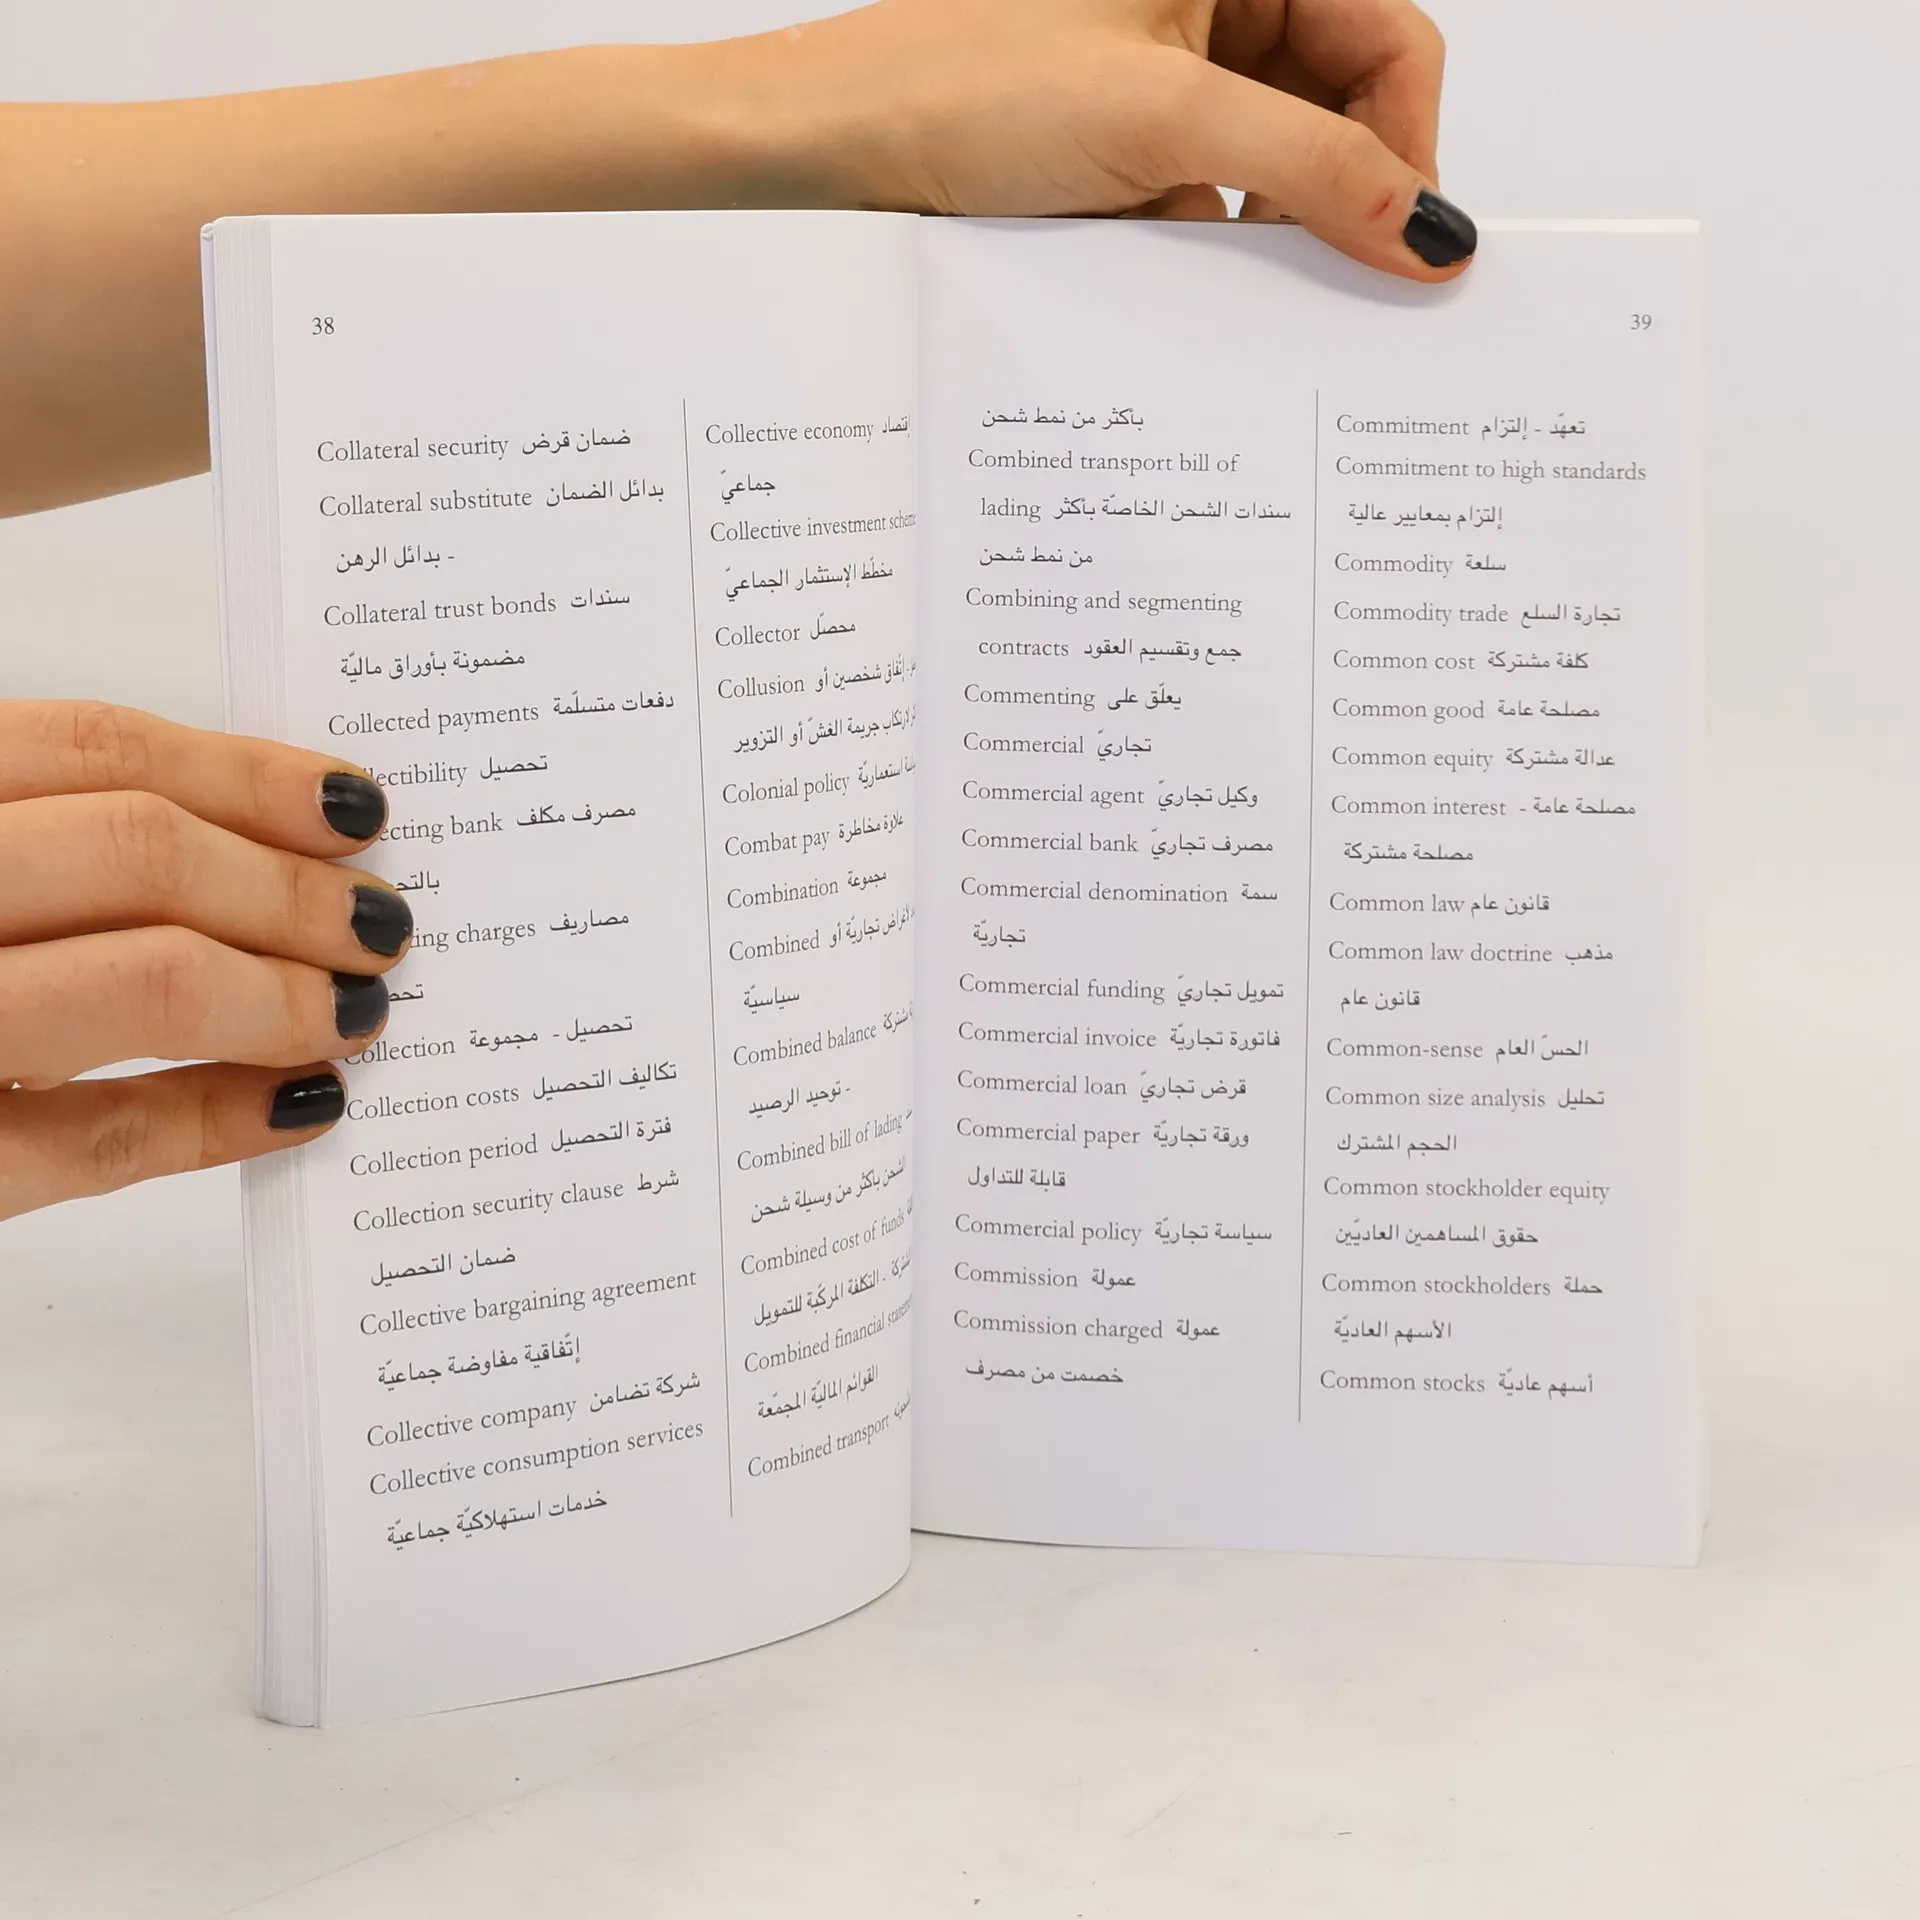 38
Collateral security ضمان قرض
Collateral substitute بدائل الضمان
- بدائل الرهن
Collateral trust bonds سندات
مضمونة بأوراق ماليّة
Collected payments دفعات متسلّمة
تحصيل
bank مصرف مكلف
charges مصاريف
Collection تحصيل - مجموعة
Collection costs تكاليف التحصيل
Collection period فترة التحصيل
Collection security clause شرط
ضمان التحصيل
Collective bargaining agreement
إتّفاقية مفاوضة جماعيّة
Collective company شركة تضامن
Collective consumption services
خدمات استهلاكيّة جماعيّة
Collective economy إقتصاد
جماعيّ
Collective investment
مخطّط الإستثمار الجماعيّ
Collector محصّل
Collusion إتّفاق شخصين أو
لارتكاب جريمة الغشّ أو التزوير
Colonial policy استعماريّة
Combat pay علاوة مخاطرة
Combination مجموعة
Combined لأغراض تجاريّة أو
سياسيّة
Combined balance مشتركة
- توحيد الرصيد
Combined bill of lading
الشحن بأكثر من وسيلة شحن
Combined cost of funds
- التكلفة المركّبة للتمويل
Combined financial
القوائم الماليّة المجمّعة
Combined transport
39
بأكثر من نمط شحن
Combined transport bill of
lading سندات الشحن الخاصّة بأكثر
من نمط شحن
Combining and segmenting
contracts جمع وتقسيم العقود
Commenting يعلّق على
Commercial تجاريّ
Commercial agent وكيل تجاريّ
Commercial bank مصرف تجاريّ
Commercial denomination سمة
تجاريّة
Commercial funding تمويل تجاريّ
Commercial invoice فاتورة تجاريّة
Commercial loan قرض تجاريّ
Commercial paper ورقة تجاريّة
قابلة للتداول
Commercial policy سياسة تجاريّة
Commission عمولة
Commission charged عمولة
خصمت من مصرف
Commitment تعهّد - إلتزام
Commitment to high standards
إلتزام بمعايير عالية
Commodity سلعة
Commodity trade تجارة السلع
Common cost كلفة مشتركة
Common good مصلحة عامة
Common equity عدالة مشتركة
Common interest مصلحة عامة -
مصلحة مشتركة
Common law قانون عام
Common law doctrine مذهب
قانون عام
Common-sense الحسّ العام
Common size analysis تحليل
الحجم المشترك
Common stockholder equity
حقوق المساهمين العاديّين
Common stockholders حملة
الأسهم العاديّة
Common stocks أسهم عاديّة